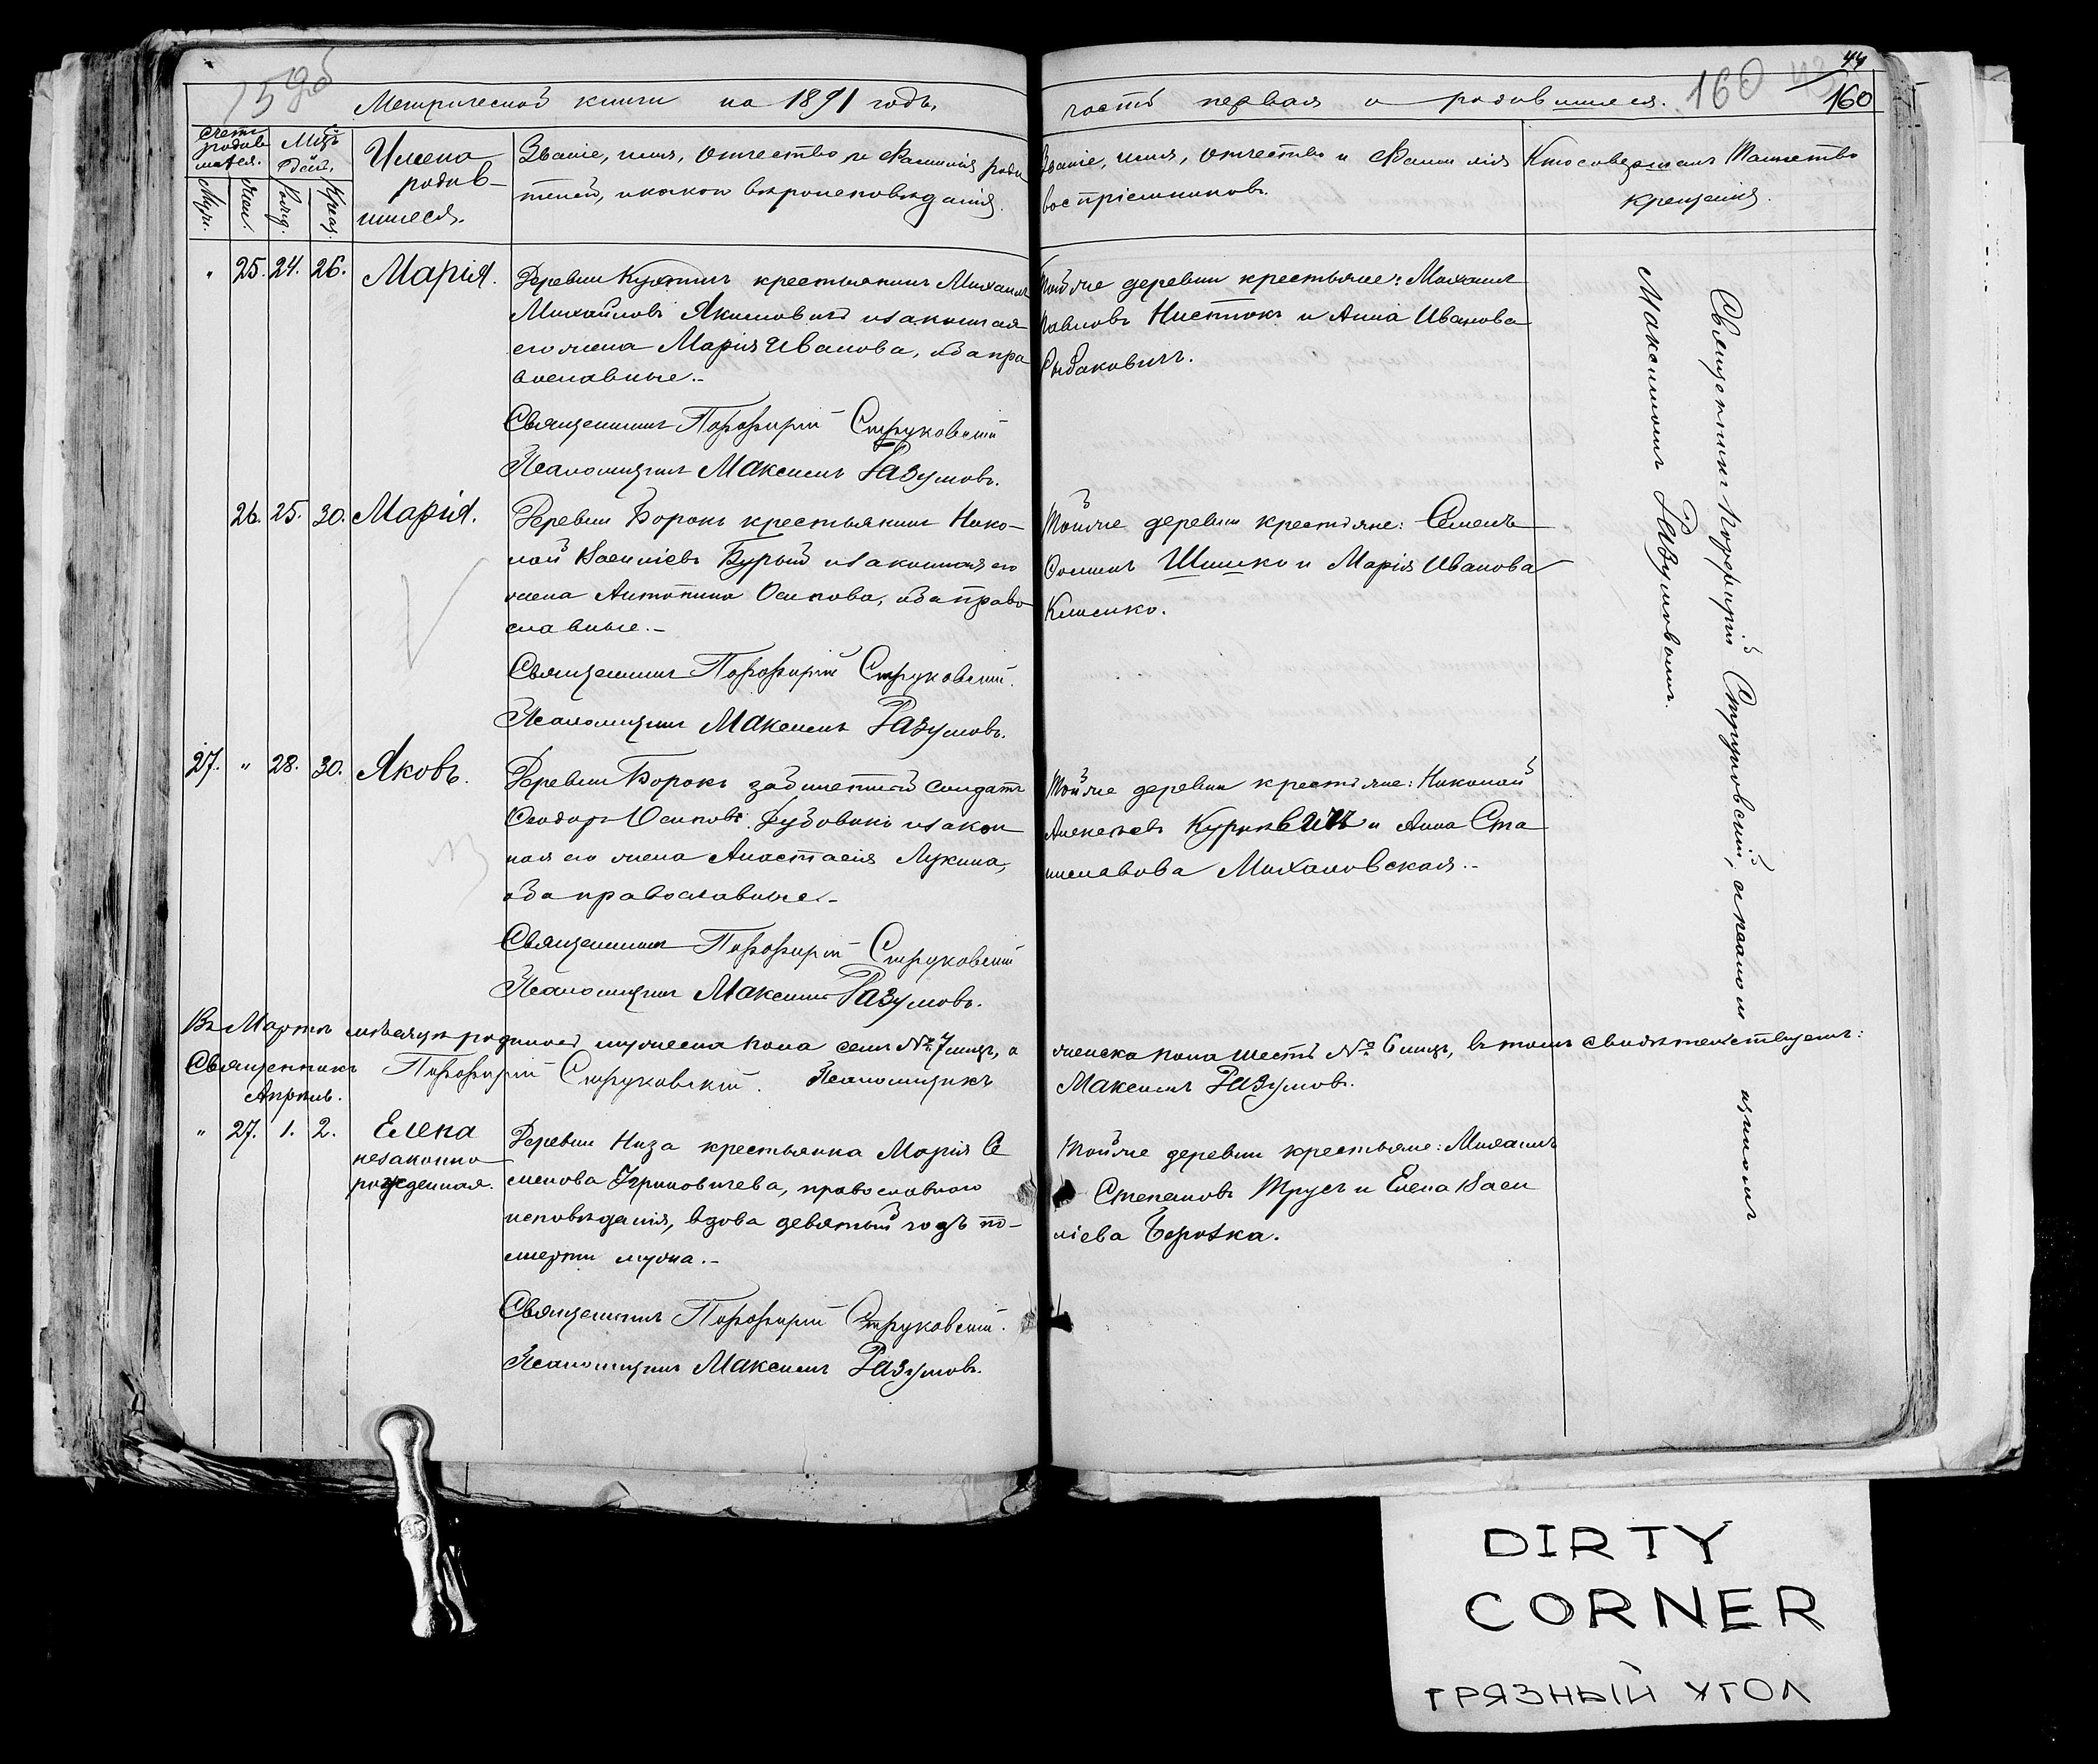 159об
Метрической книги на 1891 годъ,
Счетъ родив шихся.
Мцъ день.
Муж.
Жен.
Рожд.
Крещ.
Имена
родив-
шихся.
Званіе, имя, отчество и фамилія роди
телей, и какого вѣроисповѣданія.
" 25. 24. 26. Марія.
Деревни крестьянинъ Михаилъ
Михайловъ Якимовичъ и законная
его жена Марія Иванова, оба пра
вославные.-
Священникъ Порфирій Струковскій
Псаломщикъ Максимъ Разумовъ.
26. 25. 30. Марія.
Деревни Борокъ крестьянинъ Нико-
лай Василіевъ Бурый и законная его
жена Антонина Осипова, оба право
славные.-
Священникъ Порфирій Струковскій.
Псаломщикъ Максимъ Разумовъ.
27. " 28. 30. Яковъ.
Деревни Борокъ солдатъ
Ѳеодоръ Осиповъ и закон
ная его жена Анастасія Лукина,
оба православные.-
Священникъ Порфирій Струковскій
Псаломщикъ Максимъ Разумовъ.
Въ Мартѣ мѣсяцѣ родилось мужеска пола семь № 7 лицъ, а
Священникъ Порфирій Струковскій. Псаломщикъ
Апрѣль.
" 27. 1. 2. Елена
незаконно
рожденная.
Деревни Низа крестьянка Марія Се
менова, православнаго
исповѣданія, вдова девятый годъ по-
смерти мужа.-
Священникъ Порфирій Струковскій.
Псаломщикъ Максимъ Разумовъ.
44
160
160
часть первая о родившихся.
Званіе, имя, отчество и фамилія
воспріемниковъ.
Кто совершалъ Таинство
крещенія.
Той же деревни крестьяне: Михаилъ
Павловъ Нистюкъ и Анна Иванова
Рыбаковичъ.
Той же деревни крестьяне: Семенъ
Ѳоминъ Шишко и Марія Иванова
Климко.
Той же деревни крестьяне: Николай
Алексѣевъ и Анна Ста
ниславова Михаловская.-
женска пола шесть № 6 лицъ, въ томъ свидѣтельствуемъ:
Максимъ Разумовъ.
Той же деревни крестьяне: Михаилъ
Степановъ Трусъ и Елена Васи
ліева
Священникъ Порфирій Струковскій, съ псалом щикомъ
Максимомъ Разумовымъ.
DIRTY
CORNER
ГРЯЗНЫЙ УГОЛ